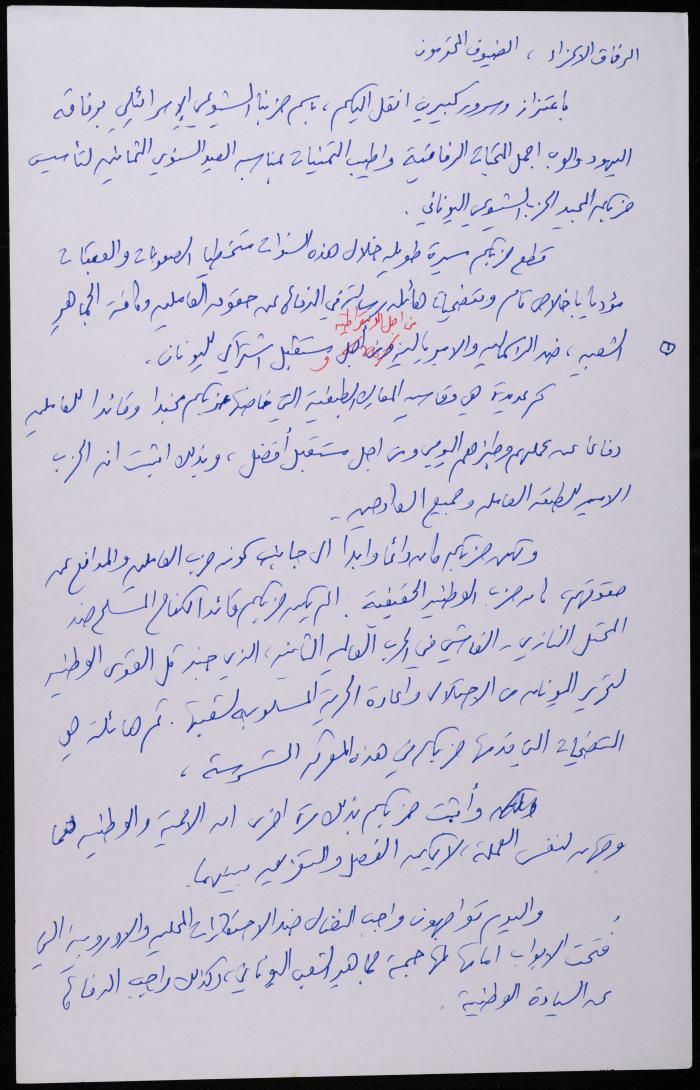 الرفاق الاعزاء ، الضيوف المحترمون
باعتزاز وسرور كبيرين انقل اليكم ، باسم حزبنا الشيوعي الاسرائيلي برفاقه
اليهود والعرب اجمل التحيات الرفاقية واطيب التمنيات بمناسبة العيد السنوي الثمانين لتأسيس
حزبكم المجيد الحزب الشيوعي اليوناني .
قطع حزبكم مسيرة طويلة خلال هذه السنوات متخطيا الصعوبات والعقبات
مؤديا باخلاص تام وبتضحيات هائلة رسالته في الدفاع عن حقوق العاملين وكافة الجماهير
من اجل الديمقراطية
الشعبية ، ضد الراسمالية والامبريالية و مستقبل اشتراكي لليونان .
كم عديدة هي وقاسية المعارك الطبقية التي خاضها حزبكم مجندا وقائدا للعاملين
دفاعا عن عملهم وخبزهم اليومي ومن اجل مستقبل أفضل ، وبذلك اثبت انه الحزب
الامين للطبقة العاملة وجميع الكادحين .
ولكن حزبكم كان دائما وابدا الى جانب كونه حزب العاملين والمدافع عن
حقوقهم، كان حزب الوطنية الحقيقية . الم يكن حزبكم قائد الكفاح المسلح ضد
المحتل النازي - الفاشي في الحرب العالمية الثانية ، الذي جند كل القوى الوطنية
لتحرير اليونان من الاحتلال واعادة الحرية المسلوبة لشعبها . كم هائلة هي
التضحيات التي قدمها حزبكم في هذه المعركة الشرسة ،
وأثبت حزبكم بذلك مرة اخرى ان الاممية والوطنية هما
وجهان لنفس العملة ، لا يمكن الفصل والتفريق بينهما .
واليوم تواجهون واجب النضال ضد الاحتكارات المحلية والاوروبية التي
فُتحت الابواب امامها لمهاجمة جماهير الشعب اليوناني ، وكذلك واجب الدفاع
عن السيادة الوطنية .
1